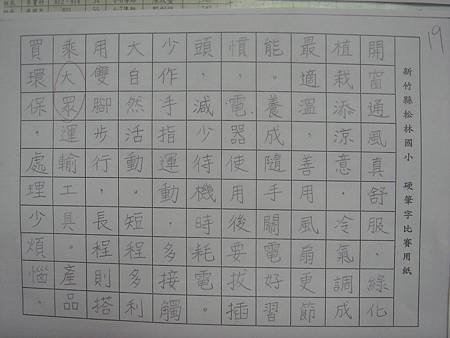 19
新竹縣松林國小 硬筆字比賽用紙
開窗通風真舒服，綠化
植栽添涼意，冷氣調成
最適溫，善用風扇更節
能。養成隨手關電好習
慣，電器使用後要拔插
頭，減少待機時耗電。
少作手指運動，多接觸
大自然活動。短程多利
用雙腳步行，長程則搭
乘大眾運輸工具。產品
買環保，處理少煩惱。